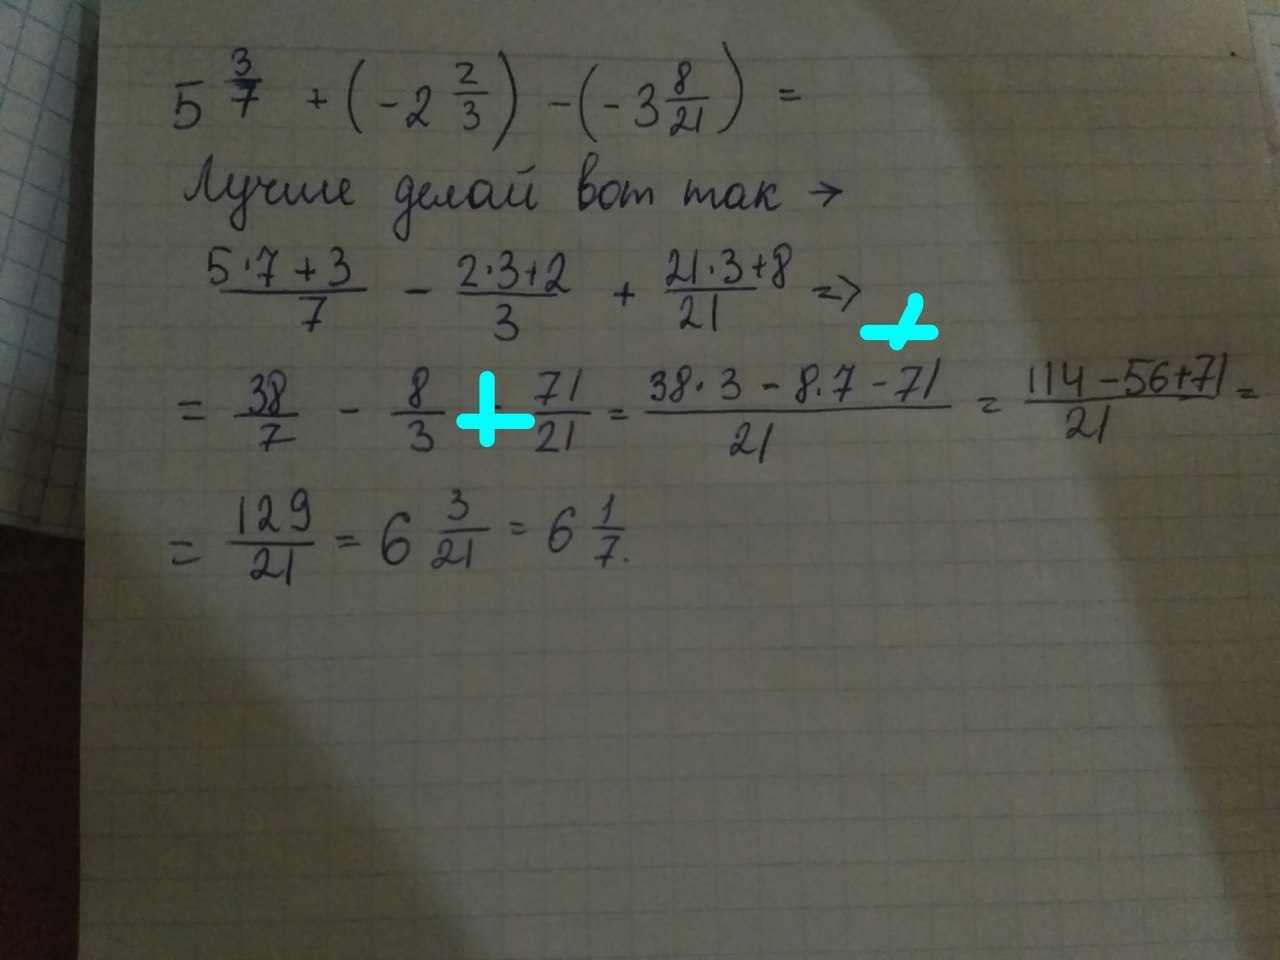 5 3/7 + (-2 2/3) - (-3 8/21) =
Лучше делай вот так →
5·7+3/7 - 2·3+2/3 + 21·3+8/21 =>
= 38/7 - 8/3 + 71/21 = 38·3-8·7-71/21 = 114-56+71/21 =
= 129/21 = 6 3/21 = 6 1/7.